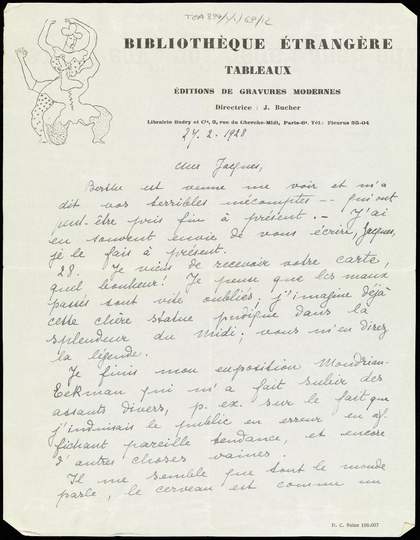 TGA 899/1/68/12
BIBLIOTHÈQUE ÉTRANGÈRE
TABLEAUX
ÉDITIONS DE GRAVURES MODERNES
Directrice : J. Bucher
Librairie Budry et Cie, 3, rue du Cherche-Midi, Paris-6e. Tél : Fleurus 95-04
27.2.1928
Cher Jacques,
Berthe est venue me voir et m'a
dit vos terribles mécomptes – qui ont
peut-être pris fin à présent. – J'ai
eu souvent envie de vous écrire, Jacques,
je le fais à présent.
28. Je viens de recevoir votre carte,
quel bonheur! Je pense que les maux
passés sont vite oubliés; j'imagine déjà
cette chère statue pudique dans la
splendeur du Midi; vous m'en direz
la légende.
Je finis mon exposition Mondrian-
Eekman qui m'a fait subir des
assauts divers, p. ex. sur le fait que
j'induisais le public en erreur en af-
fichant pareille tendance, et encore
d'autres choses vaines.
Il me semble que tout le monde
parle, le cerveau est comme un
R. C. Seine 106.007